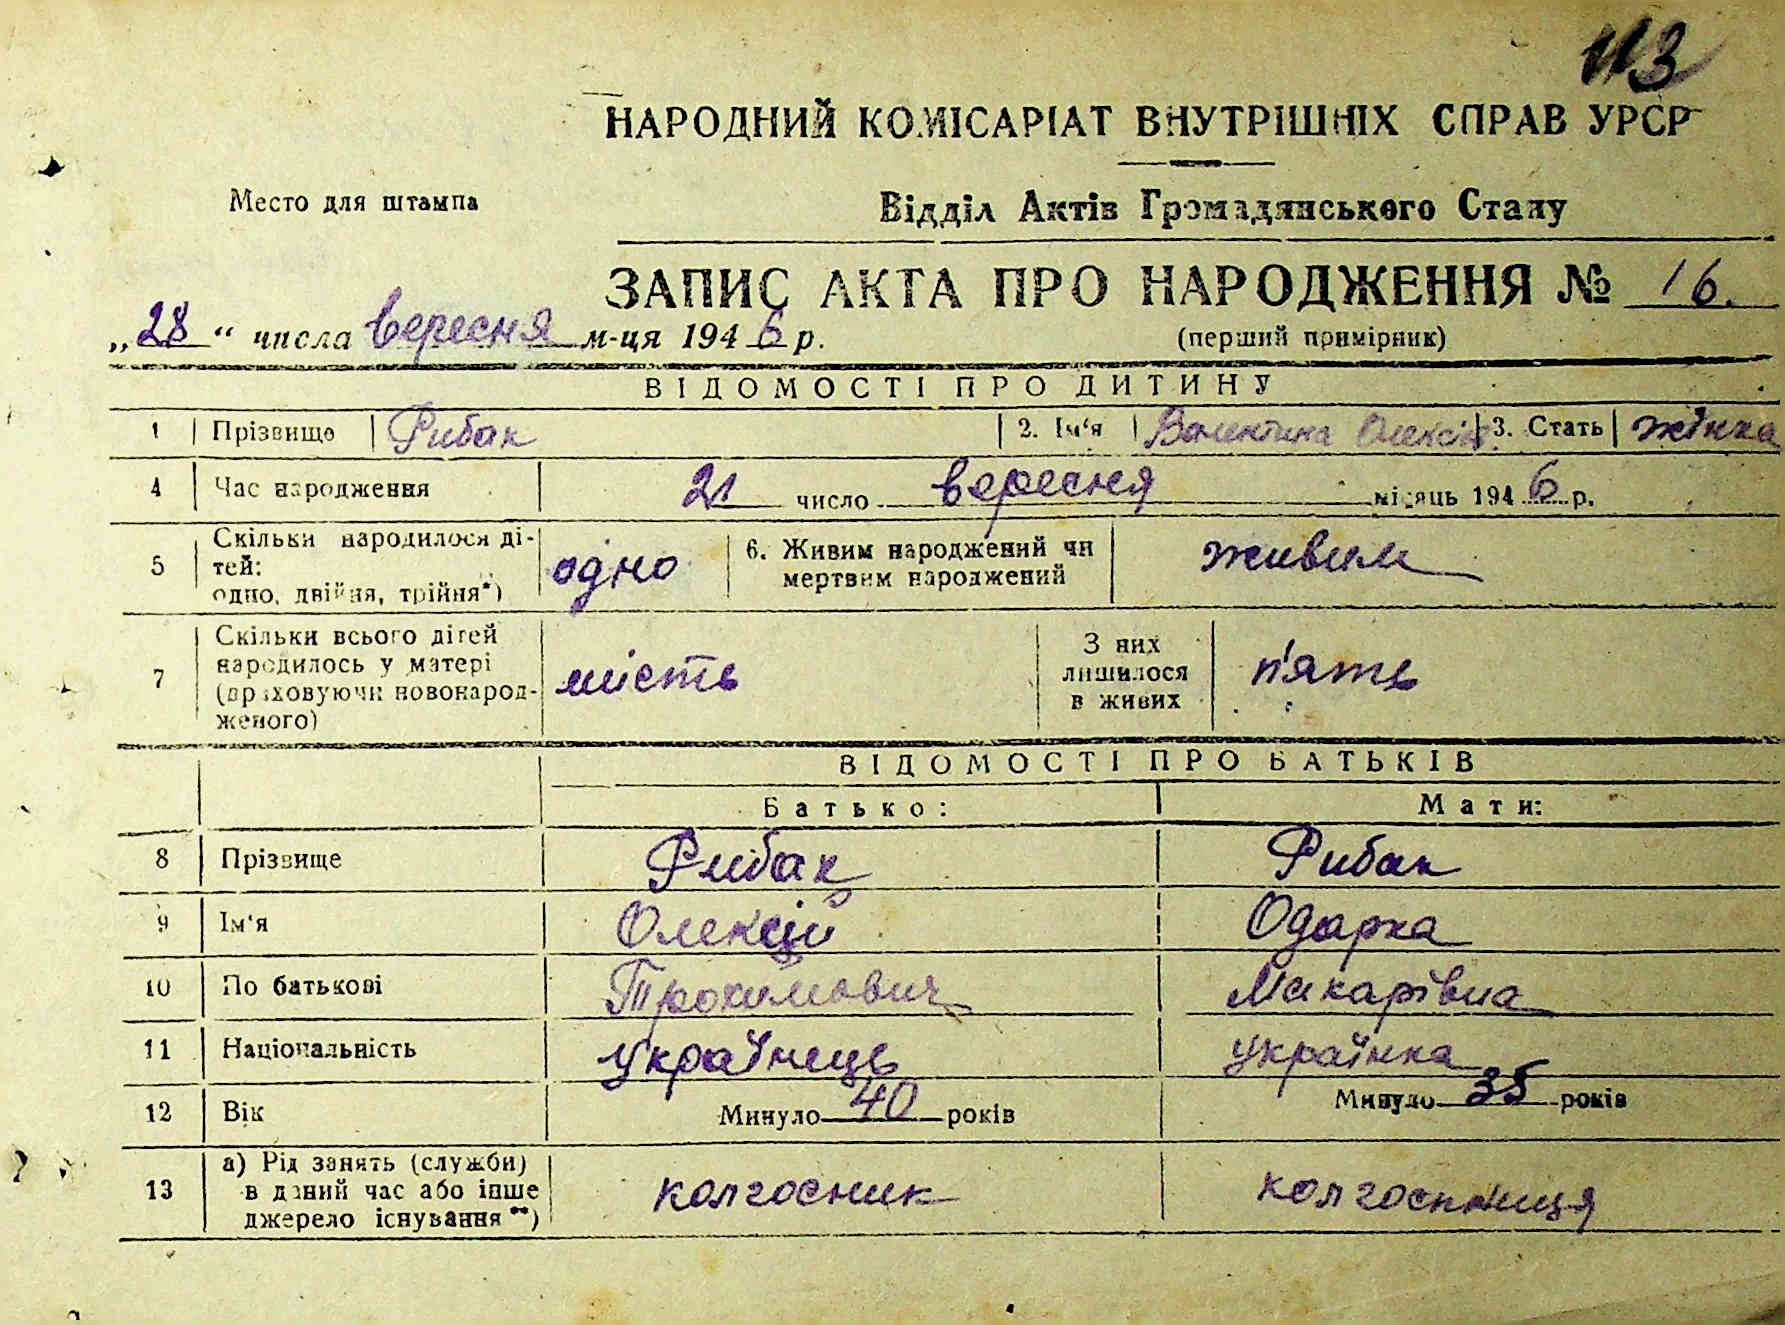 113
НАРОДНИЙ КОМІСАРІАТ ВНУТРІШНІХ СПРАВ УРСР
Место для штампа
Відділ Актів Громадянського Стану
ЗАПИС АКТА ПРО НАРОДЖЕННЯ № 16.
„28“ числа вересня м-ця 1946 р.
(перший примірник)
ВІДОМОСТІ ПРО ДИТИНУ
1 Прізвище Рибак 2. Ім‘я Валентина 3. Стать жінка
4 Час народження 21 число вересня місяць 1946 р.
5 Скільки народилося ді-
тей:
одно, двійня, трійня*)
одно
6. Живим народжений чи
мертвим народжений
живим
7 Скільки всього дітей
народилось у матері
(враховуючи новонарод-
женого)
шість
З них
лишилося
в живих
п'ять
ВІДОМОСТІ ПРО БАТЬКІВ
Батько: Мати:
8 Прізвище Рибак Рибак
9 Ім‘я Олексій Одарка
10 По батькові Трохимович Макарівна
11 Національність українець українка
12 Вік Минуло 40 років Минуло 35 років
13 а) Рід занять (служби)
в даний час або інше
джерело існування**)
колгосник колгоспниця